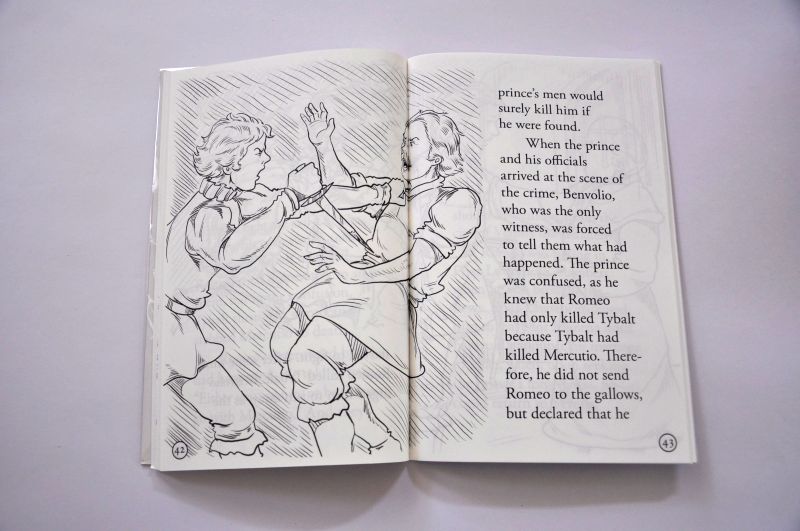 prince's men would
surely kill him if
he were found.
When the prince
and his officials
arrived at the scene of
the crime, Benvolio,
who was the only
witness, was forced
to tell them what had
happened. The prince
was confused, as he
knew that Romeo
had only killed Tybalt
because Tybalt had
killed Mercutio. There-
fore, he did not send
Romeo to the gallows,
but declared that he
42
43